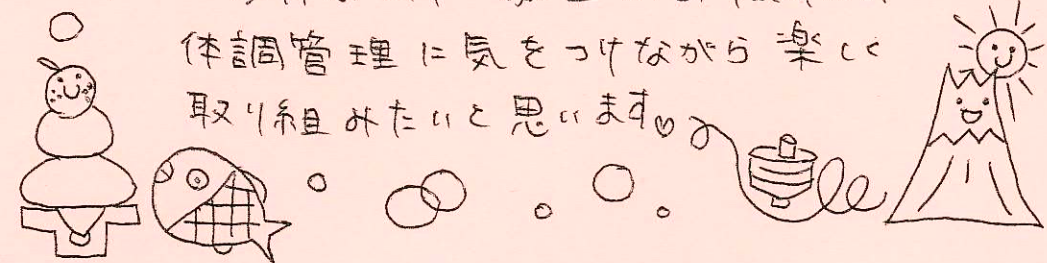 体調管理に気をつけながら楽しく
取り組みたいと思います♡